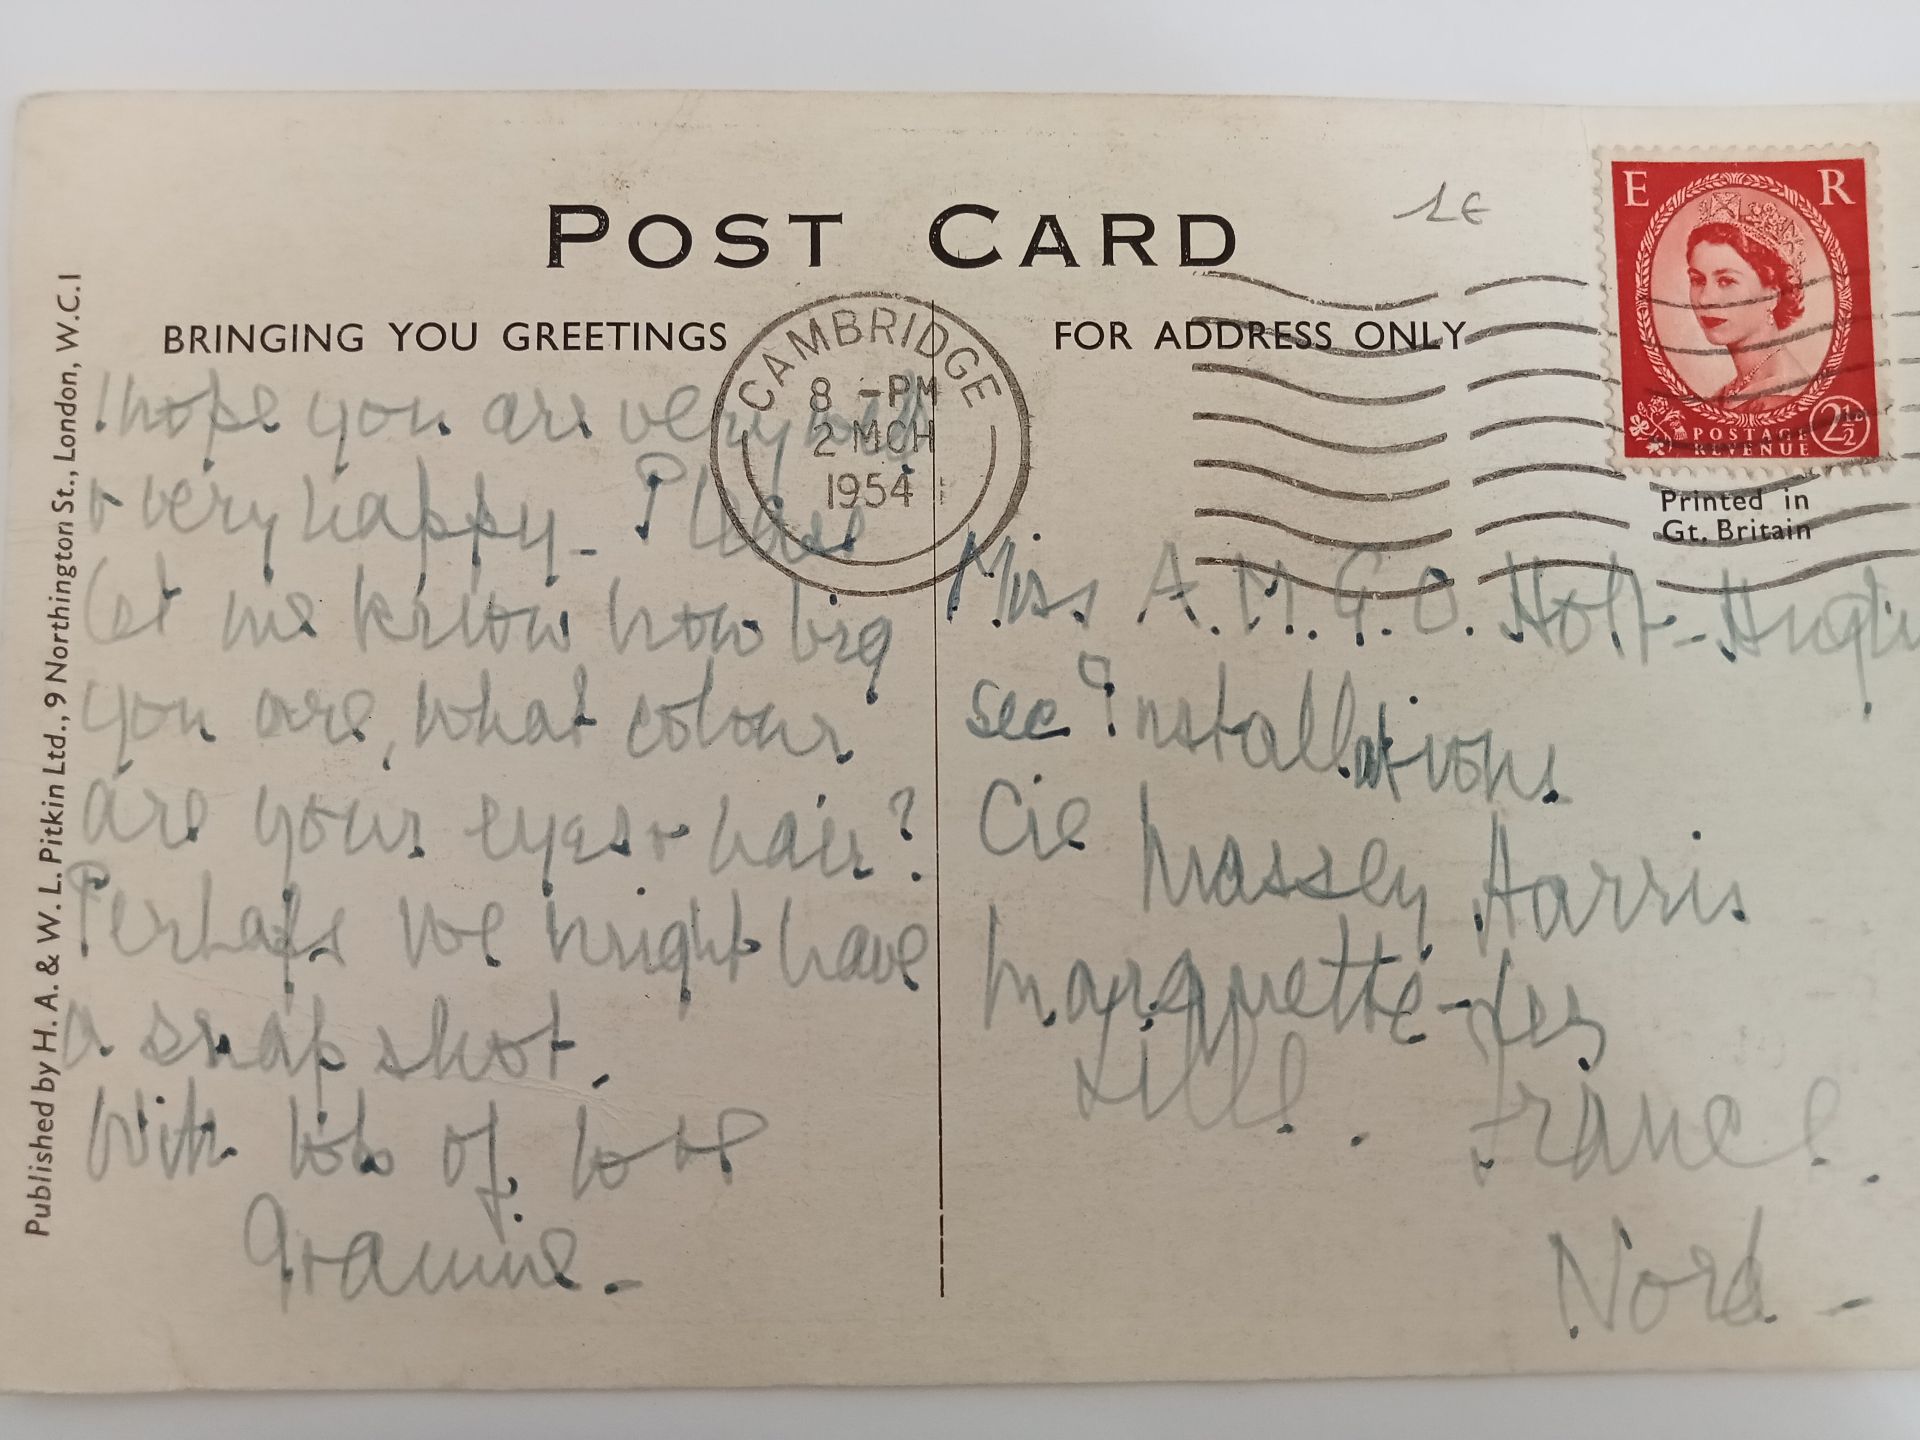 POST CARD
1€
BRINGING YOU GREETINGS
FOR ADDRESS ONLY
CAMBRIDGE
8 - PM
2 MCH
1954
E R
POSTAGE
REVENUE
2½D
Printed in
Gt. Britain
I hope you are very well
& very happy - Please
let me know how big
you are, what colour
are your eyes & hair?
Perhaps we might have
a snap shot.
With lots of love
Grannie -
Miss A.M.G.O. Holt-
see Installations
Cie Massey Harris
Marquette-Les
Lille. France.
Nord -
Published by H. A. & W. L. Pitkin Ltd., 9 Northington St., London, W.C.1